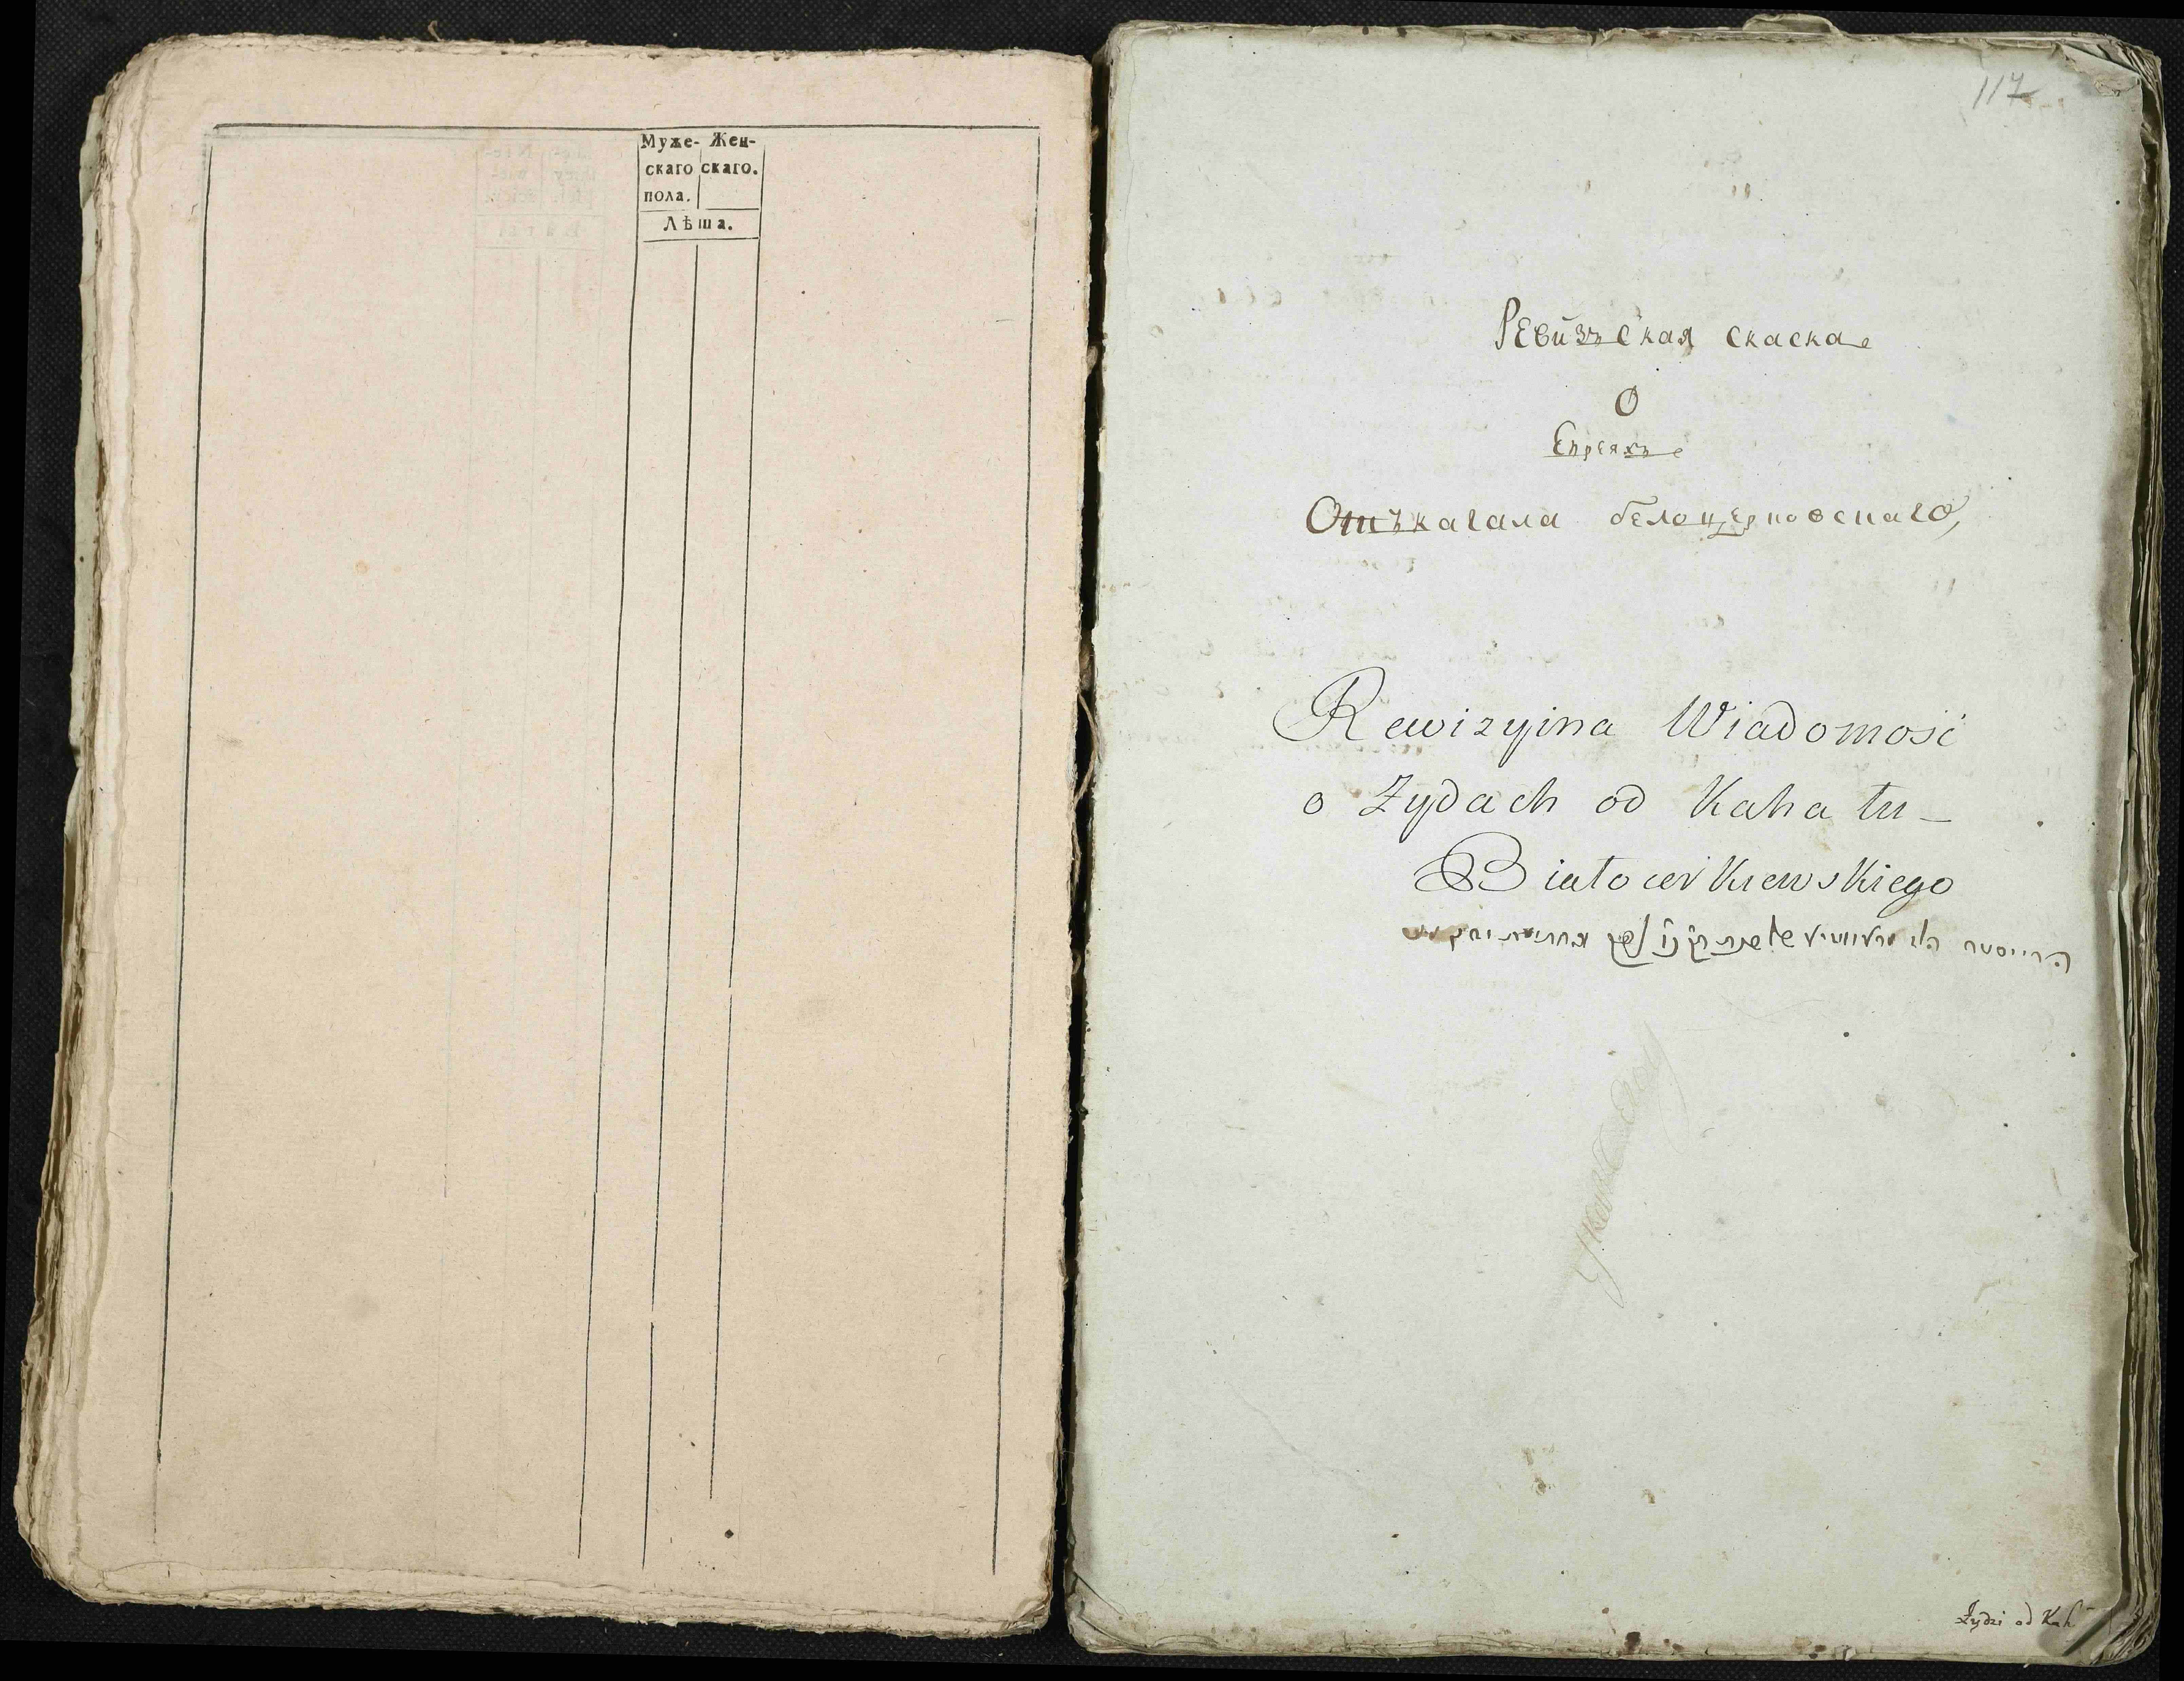 Муже- Жен-
скаго скаго.
пола.
Лѣта.
117
Ревизъская скаска
О
Евреяхъ
Отъ кагала белоцерковскаго,
Rewizyina Wiadomość
o Zydach od Kahału
Białocerkiewskiego
Żydzi od Kah